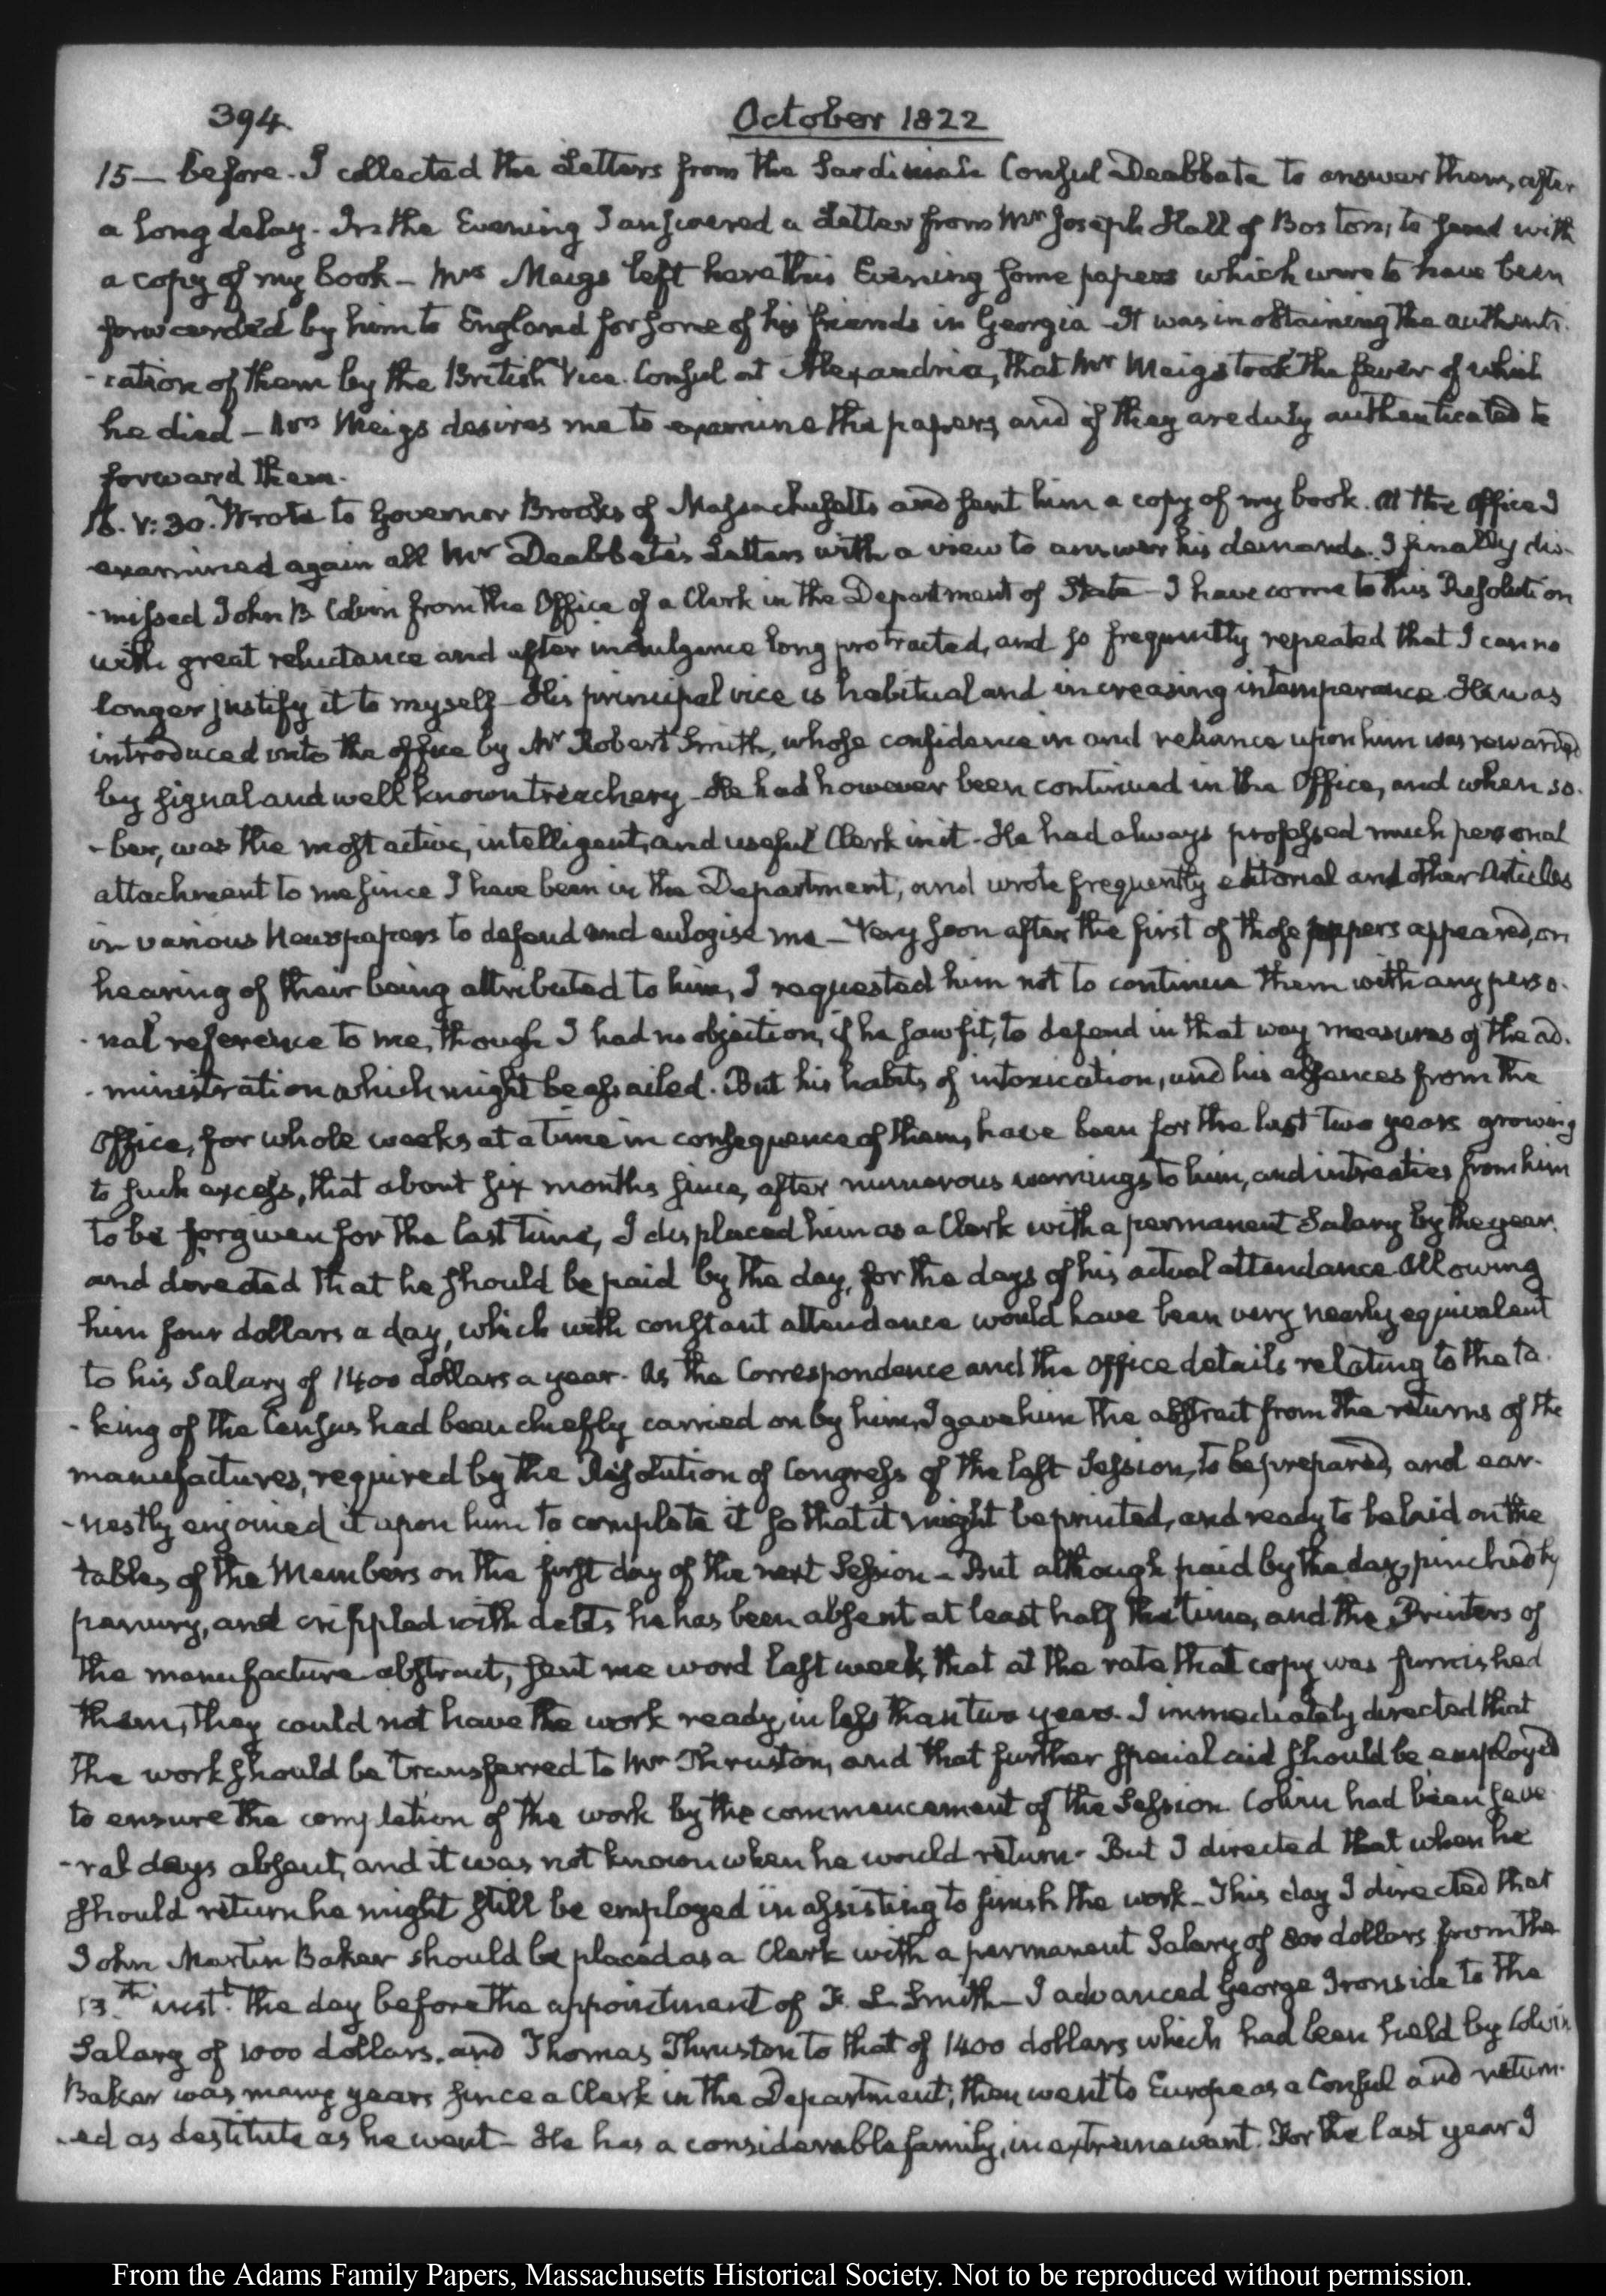 394
October 1822
15— before. I collected the Letters from the Sardinian Consul Deabbate to answer them, after
a long delay. In the Evening I answered a Letter from Mr Joseph Hall of Boston, to send with
a copy of my book — Mrs Meigs left here this Evening some papers which were to have been
forwarded by him to England for some of his friends in Georgia — It was in obtaining the authenti-
-cation of them by the British Vice. Consul at Alexandria, that Mr Meigs took the fever of which
he died — Mrs Meigs desires me to examine the papers, and if they are duly authenticated to
forward them.
16. V:30. Wrote to Governor Brooks of Massachusetts and sent him a copy of my book. At the Office I
examined again all Mr Deabbate's Letters with a view to answer his demands. I finally dis-
-missed John B Colvin from the Office of a Clerk in the Department of State — I have come to this Resolution
with great reluctance and after indulgence long protracted, and so frequently repeated that I can no
longer justify it to myself — His principal vice is habitual and increasing intemperance. He was
introduced into the office by Mr Robert Smith, whose confidence in and reliance upon him was rewarded
by signal and well known treachery — He had however been continued in the Office, and when so-
-ber, was the most active, intelligent, and useful Clerk in it — He had always professed much personal
attachment to me since I have been in the Department; and wrote frequently editorial and other Articles
in various Newspapers to defend and eulogise me — Very soon after the first of those papers appeared, on
hearing of their being attributed to him, I requested him not to continue them with any perso-
-nal reference to me, though I had no objection, if he saw fit, to defend in that way measures of the ad-
-ministration which might be assailed. But his habits of intoxication, and his absences from the
Office, for whole weeks at a time in consequence of them, have been for the last two years growing
to such excess, that about six months since, after numerous warnings to him, and intreaties from him
to be forgiven for the last time, I displaced him as a Clerk with a permanent Salary by the year.
and directed that he should be paid by the day, for the days of his actual attendance. Allowing
him four dollars a day, which with constant attendance would have been very nearly equivalent
to his Salary of 1400 dollars a year. As the Correspondence and the office details relating to the ta-
-king of the Census had been chiefly carried on by him, I gave him the abstract from the returns of the
manufactures, required by the Resolution of Congress of the last Session, to be prepared, and ear-
-nestly enjoined it upon him to complete it so that it might be printed, and ready to be laid on the
tables of the Members on the first day of the next Session — But although paid by the day, pinched by
penury, and crippled with debts he has been absent at least half the time, and the Printers of
the manufacture abstract, sent me word last week, that at the rate that copy was furnished
them, they could not have the work ready, in less than two years. I immediately directed that
the work should be transferred to Mr Thruston, and that further special aid should be employed
to ensure the completion of the work by the commencement of the Session. Colvin had been seve-
-ral days absent, and it was not known when he would return. But I directed that when he
should return he might still be employed in assisting to finish the work — This day I directed that
John Martin Baker should be placed as a Clerk with a permanent Salary of 800 dollars from the
13th. inst. the day before the appointment of F. L. Smith — I advanced George Ironside to the
Salary of 1000 dollars, and Thomas Thruston to that of 1400 dollars which had been held by Colvin
Baker was many years since a Clerk in the Department; then went to Europe as a Consul and return-
-ed as destitute as he went — He has a considerable family, in extreme want. For the last year I
From the Adams Family Papers, Massachusetts Historical Society. Not to be reproduced without permission.